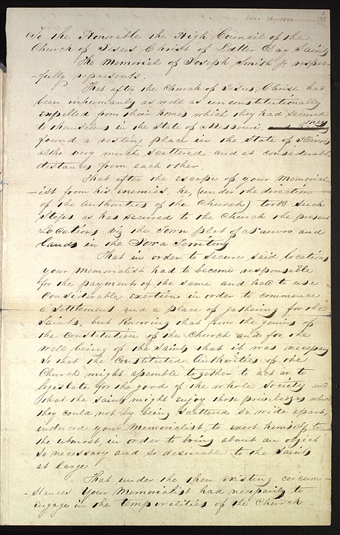 To the Honorable the High Council of the
Church of Jesus Christ of Latter Day Saints
The Memorial of Joseph Smith Jr respec-
fully represents.
That after the Church of Jesus Christ had
been inhumanly as well as unconstitutionally
expelled from their homes which they had secured
to themselves in the State of Missouri, they
found a resting place in the State of Illinois
altho very much scattered and at considerable
distances from each other
That after the escape of your Memorial-
ist from his enemies, he, (under the direction
of the authorities of the Church) took such
Steps as has secured to the Church the present
Locations viz the Town plat of Nauvoo and
lands in the Iowa Territory
That in order to secure said locations
your Memorialist had to become responsible
for the payment of the same and had to use
considerable exertion in order to commence
a settlement and a place of gathering for the
Saints, but knowing that from the genius of
the constitution of the Church and for the
well being of the Saints that it was necessary
so that the constituted Authorities of the
Church might assemble together to act or to
legislate for the good of the whole Society and
that the Saints might enjoy those privileges which
they could not by being scattered so wide apart,
induced your Memorialist, to exert himself to
the utmost, in order to bring about an object
so necessary and so desirable to the Saints
at large
That under the then existing circum-
stances Your Memorialist had necessarily to
engage in the temporalities of the Church